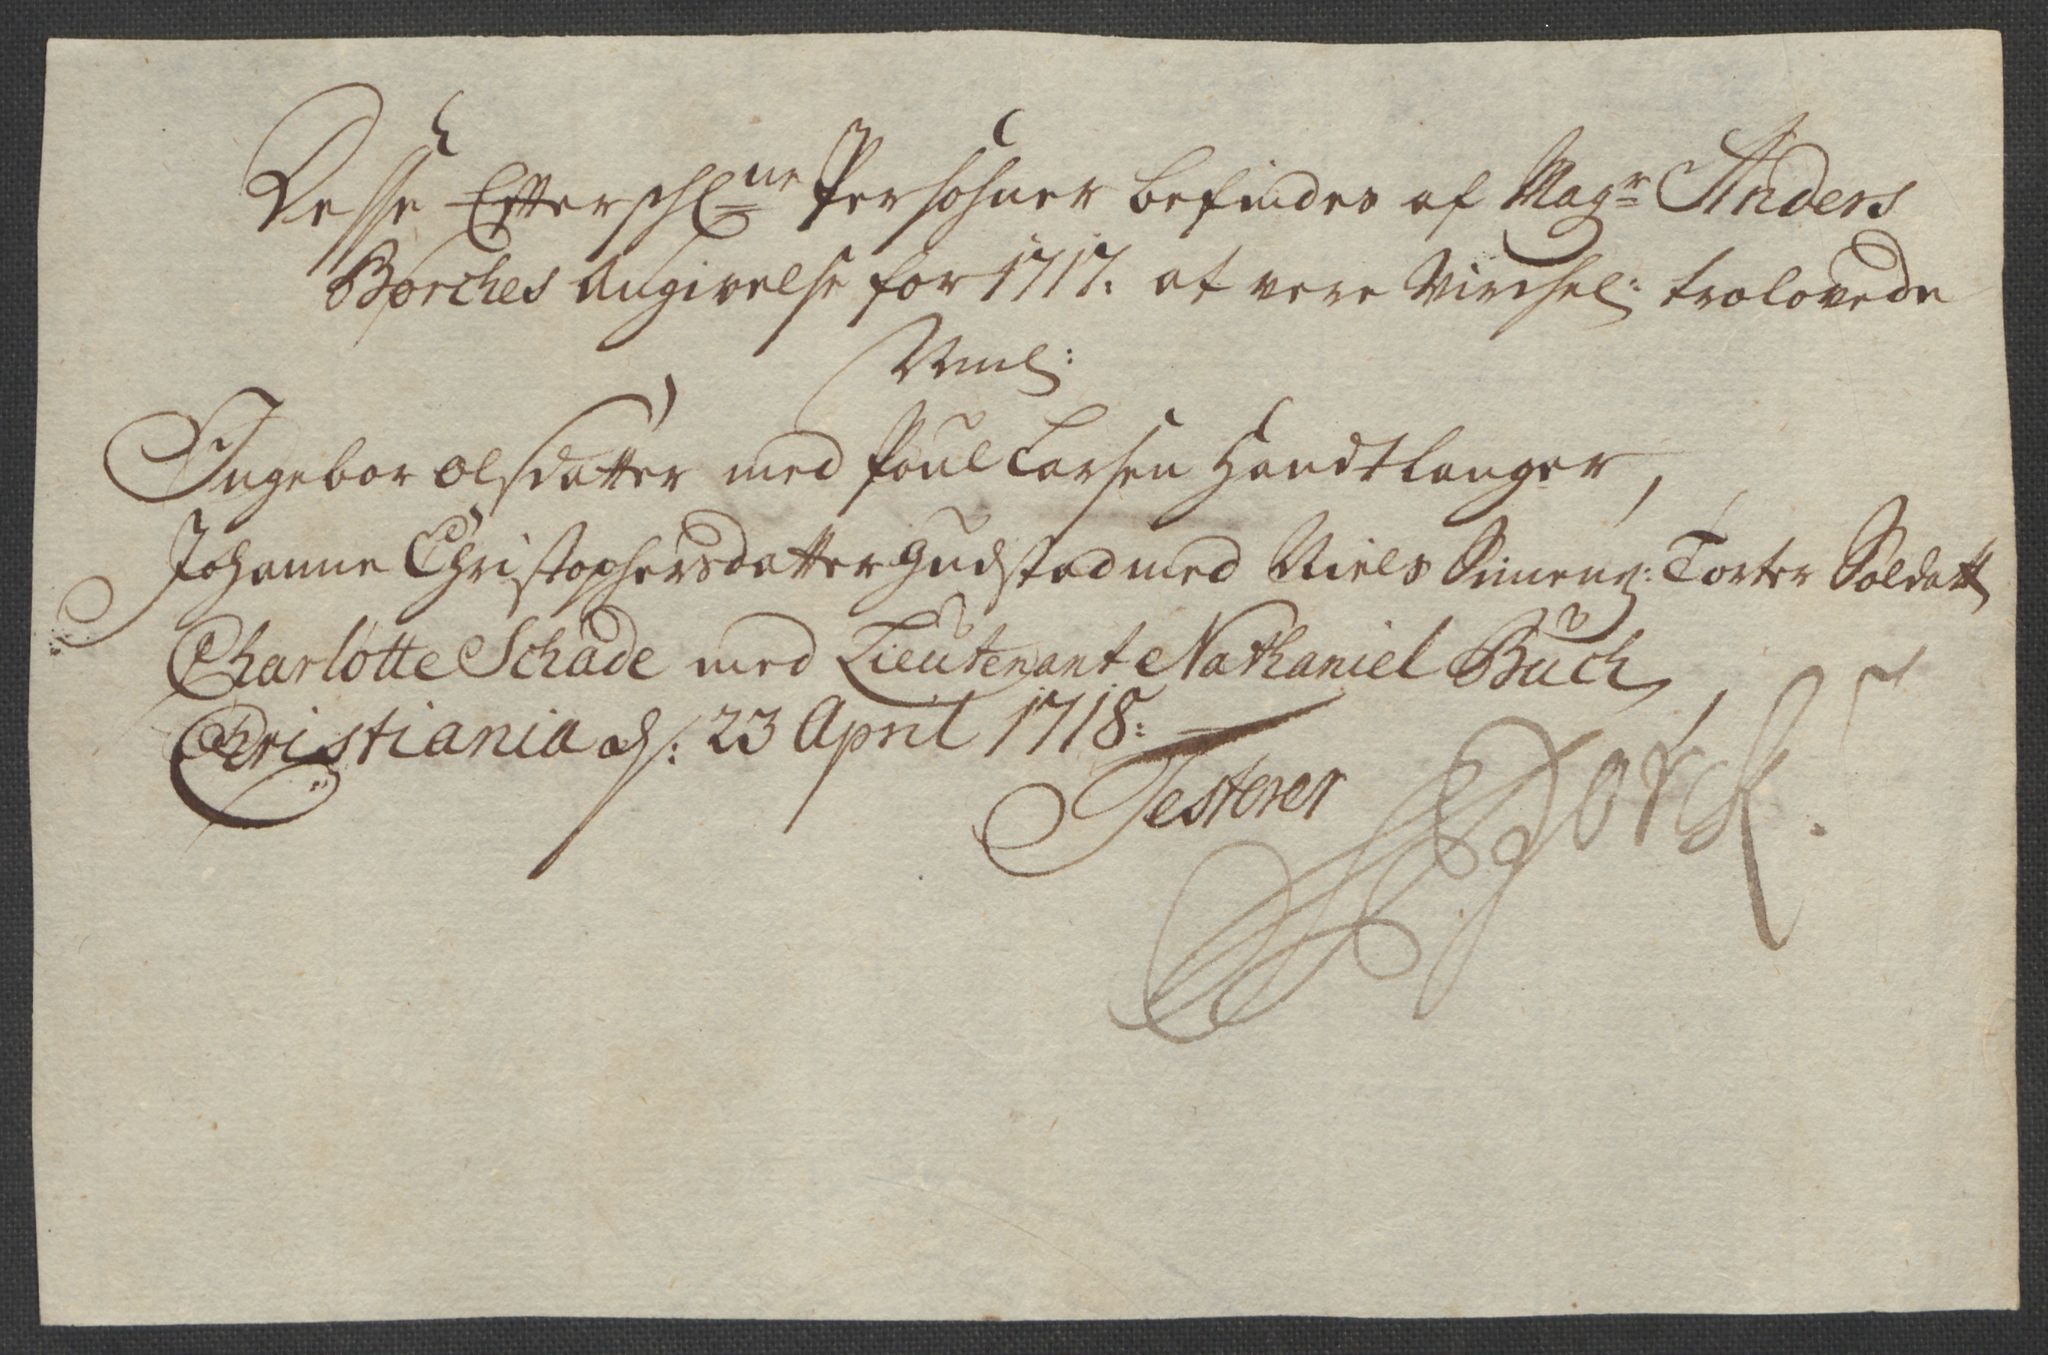 Desse Efterschl:ne Persohner befindes af Magr Anders
Borches Angivelse for 1717. at vere Virchel: trolovede
Nml:
Ingebor Olsdatter med Poul Larsen Handtlanger,
Johanne Christophersdatter Gudstad med Niels Simens: Torter Soldatt
Charlotte Schade med Lieutenant Nathaniel Buch,
Christiania d: 23 April 1718:
Testerer